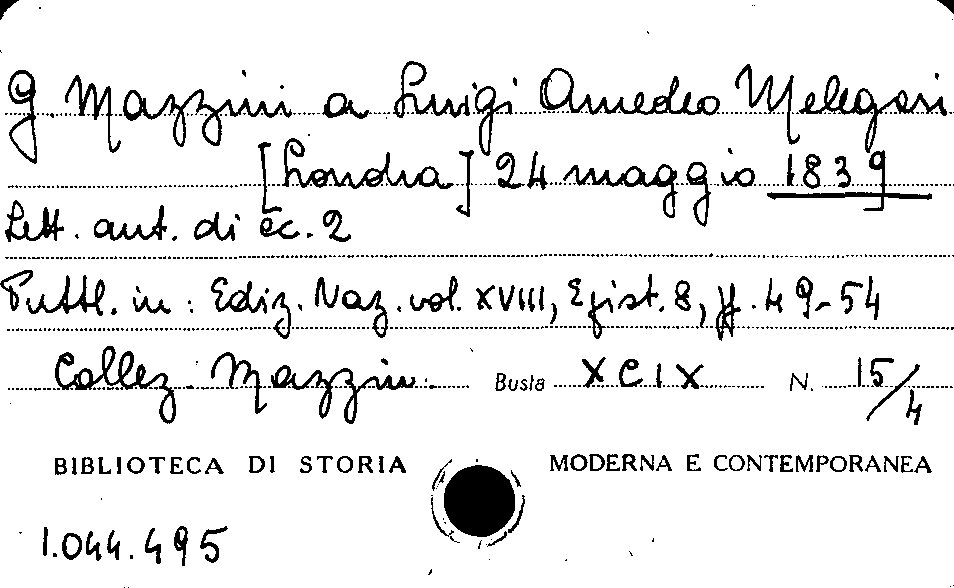 G. Mazzini a Luigi Amedeo Melegari
[Londra] 24 maggio 1839
Lett. aut. di cc. 2
Pubbl. in: Ediz. Naz. vol. XVIII, Epist. 8, pp. 49-54
Collez. Mazzini. Busta XCIX N. 15/4
BIBLIOTECA DI STORIA MODERNA E CONTEMPORANEA
1.044.495